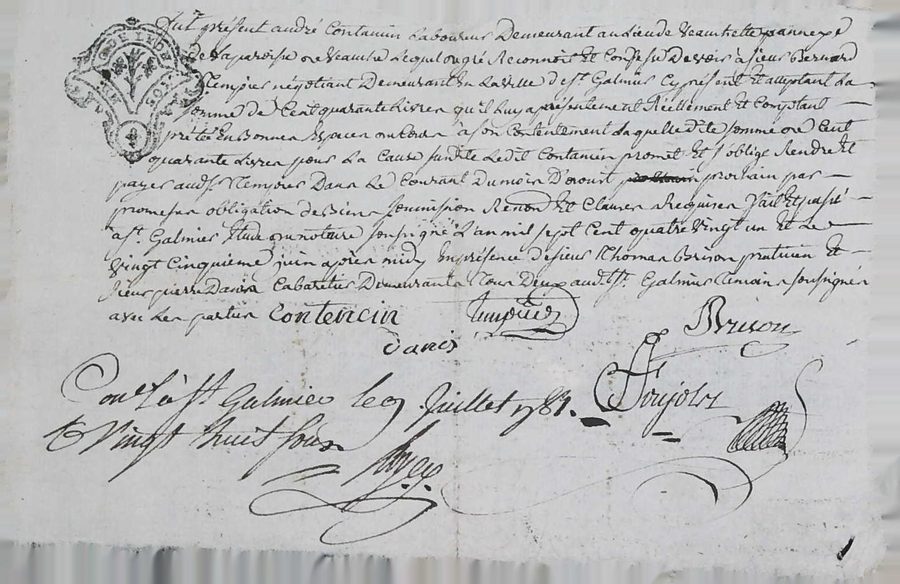 fut présent andré Contamin Laboureur Demeurant au Lieu de Veauchette annexe
de la paroisse de Veauche Lequel de gré Reconnoit Et Confesse Devoir à sieur Bernard
négotiant Demeurant En La Ville de St. Galmier Cy présent Et acceptant La
somme de Cent quarante Livres qu'il Luy a présentement Réellement Et Comptant
prêtée En Bonnes Espèces au Cours a son Contentement Laquelle dite somme de Cent
quarante Livres pour La Cause susdite Ledit Contamin promet Et s'oblige Rendre Et
payer audt. Dans Le Courant Du mois D'aoust prochain par
promesse obligation de Biens soumission Renon. Et Clauses Requises fait Et passé
a St. Galmier Etude du notaire soussigné L'an mil sept Cent quatre Vingt un Et Le
Vingt Cinquième juin après midy En présence de sieur Thomas Brison praticien Et
sieur pierre Danis Cabaretier Demeurants Tous Deux audt. St. Galmier Temoins soussignés
avec Les parties Contencin
Brison
danis
Conlé à St. Galmier le 9 Juillet 1781.
R Vingt huit sous